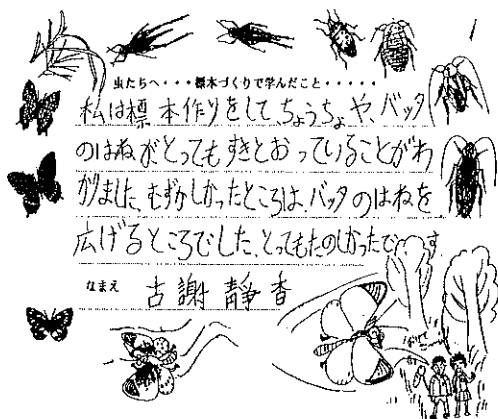 虫たちへ・・・標本づくりで学んだこと・・・・・
私は標本作りをして、ちょうちょや、バッタ
のはねがとってもすきとおっていることがわ
かりました。むずかしかったところは、バッタのはねを
広げるところでした。とってもたのしかったです
なまえ 古謝靜香